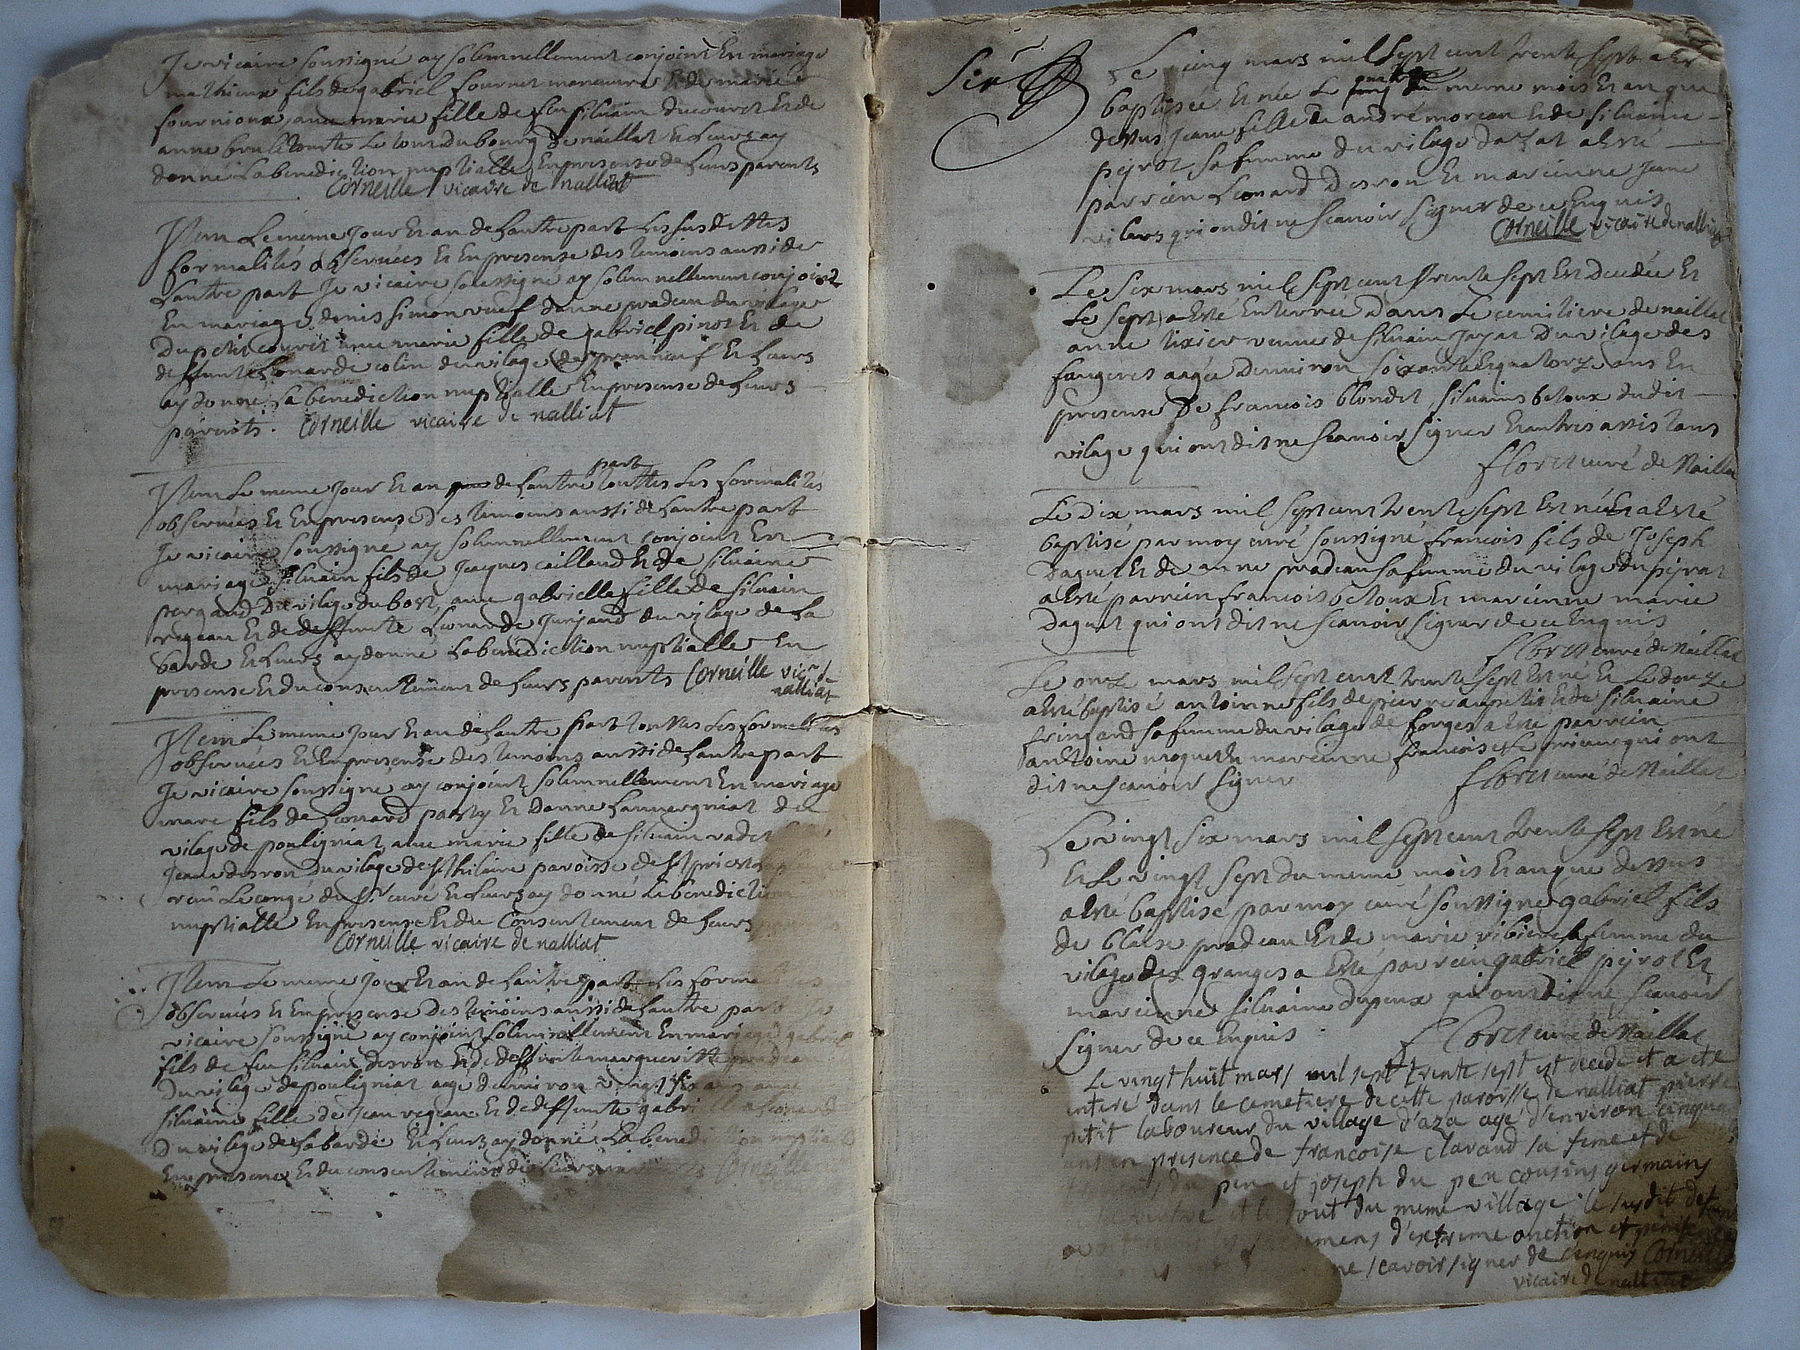 Je vicaire soussigné ay solemnellement conjoint En mariage
mathieux fils de gabriel fournet maneuvre Et de marie
fournioux, avec marie fille de feu silvain ducouret Et de
anne le tout du bourg de naillat Et leurs ay
donné la benediction nuptialle En presense de leurs parents
Corneille vicaire de nalliat
Item Le meme Jour Et an de Lautre part Les susdittes
formalites observées Et En presense des temoins aussi de
Lautre part Je vicaire soussigné ay solemnellement conjoint
En mariage denis simon veuf danne pradeau du vilage
du petit couret avec marie fille de gabriel pinot Et de
deffunte Leonarde colin du vilage de Et Leurs
ay donné la benediction nuptialle En presense de Leurs
parents. Corneille vicaire de nalliat
part
Item Le meme Jour Et an de Lautre touttes Les formalités
observées Et En presense Des temoins aussi de Lautre part
Je vicaire soussigné ay solemnellement conjoint En
mariage silvain fils de Jacques caillaud Et de silvaine
pergaud Du vilage du bost, avec gabrielle fille de silvain
vegeau Et de deffunte Leonarde Junjaud du vilage de La
barde Et Leurs ay donné La benediction nuptialle En
presense Et du consentement de Leurs parents Corneille vic. de
nalliat
Item Le meme Jour Et an de Lautre part touttes Les formalités
observées Et En presense des temoins aussi de Lautre part
Je vicaire soussigné ay conjoint solemnellement En mariage
marc fils de Leonard paroty Et Danne Lauvergniat du
vilage de pouligniat avec marie fille de silvain vadet
Jeane desron du vilage de st hilaire paroisse de st priest
veü Le congé du sr curé Et Leurs ay donné La benediction
nuptialle En presense Et du Consentement de Leurs
Corneille vicaire de nalliat
Item Le meme Jour Et an de Lautre part Les formalites
observées Et En presense Des temoins aussi de Lautre part
vicaire soussigné ay conjoint solemnellement En mariage gabriel
fils de feu silvain desron Et de deffunte marguerite pradeau
Du vilage de pouligniat agé denviron vingt ans avec
silvaine fille de Jean vegeau Et de deffunte gabrielle
Du vilage de Labarde Et Leurs ay donné La benediction nuptialle
En presense Et du consentement de Leurs parents Corneille
Le cinq mars mil sept cent trente sept a Esté
quatre
baptisée Et née Le meme mois Et an que
dessus Jeane fille de andré moreau Et de silvaine
peyrot sa femme du vilage dazat a Esté
parrein Leonard Desron Et mareinne Jeane
qui ont dit ne scavoir signer de ce Enquis
Corneille vicaire de nalliat
Le Six mars mil sept cent trente sept Est Decedée Et
Le sept a Esté Enterrée Dans Le cemitiere de naillat
anne tixier veuve de silvain Jazat Du vilage des
faugeres aagée Denviron soixante Et quatorze ans En
presense De francois blondet, silvain betoux du dit
vilage qui ont dit ne scavoir signer Et autres assistans
floret curé de Naillat
Le Dix mars mil sept cent trente sept Est né Et a Esté
baptisé par moy curé soussigné francois fils de Joseph
daguet Et de anne pradeau sa femme du vilage du peyrat
a Esté parrein francois betoux Et mareinne marie
Daguet qui ont dit ne scavoir signer de ce Enquis
floret curé de Naillat
Le onze mars mil sept cent trente sept Est né Et Le douze
a Esté baptisé antoinne fils de pierre aupetit Et de silvaine
fringand sa femme du vilage de forges a Esté parrein
antoine Et mareinne francoise Le prieur qui ont
dit ne scavoir signer floret curé de Naillat
Le vingt six mars mil sept cent trente sept Est né
Et Le vingt sept du meme mois Et an que dessus
a Esté baptisé par moy curé soussigné gabriel fils
de blaise pradeau Et de marie sa femme du
vilage des granges a Esté parrein gabriel peyrot Et
mareinne silvaine dupeux qui ont dit ne scavoir
signer de ce Enquis floret curé de Naillat
Le vingt huit mars mil sept trente sept est decedé et a eté
enteré dans le cemetiere de cette paroisse de nalliat pierre
petit laboureur du village d'aza agé d'environ cinquante
ans en presence de francoise clavaud sa feme et de
du peu et joseph du peu cousins germains
et le tout du meme village le susdit defunt
d'extreme onction et penitence
ne scavoir signer de cenquis Corneille
vicaire de nalliat